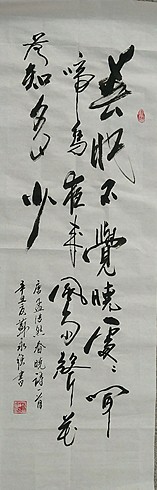 春眠不覺曉處處聞
啼鳥夜來風雨聲花
落知多少
唐孟浩然春曉詩一首
辛丑夏
書